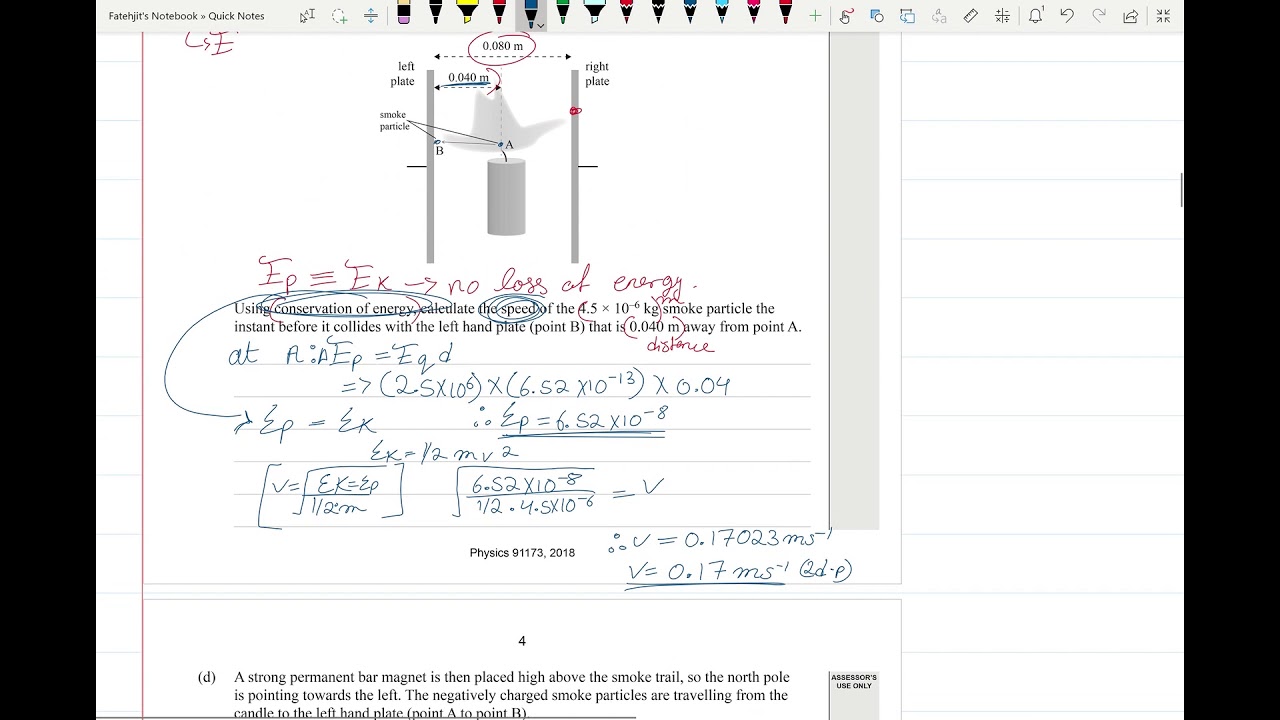 Fatehjit's Notebook » Quick Notes
↳E
0.080 m
left plate
right plate
0.040 m
smoke particle
B
A
Ep ≡ Ek → no loss of energy.
Using conservation of energy, calculate the speed of the 4.5 × 10⁻⁶ kg smoke particle the
m
instant before it collides with the left hand plate (point B) that is 0.040 m away from point A.
distance
at A: ΔEp = Eqd
=> (2.5×10⁶) × (6.52×10⁻¹³) × 0.04
Ep = Ek ∴ Ep = 6.52×10⁻⁸
Ek = 1/2 mv²
[v = √(Ek=Ep / 1/2·m)] √(6.52×10⁻⁸ / 1/2 · 4.5×10⁻⁶) = v
∴ v = 0.17023 ms⁻¹
Physics 91173, 2018
v = 0.17 ms⁻¹ (2d.p)
4
(d) A strong permanent bar magnet is then placed high above the smoke trail, so the north pole
is pointing towards the left. The negatively charged smoke particles are travelling from the
candle to the left hand plate (point A to point B).
ASSESSOR'S
USE ONLY